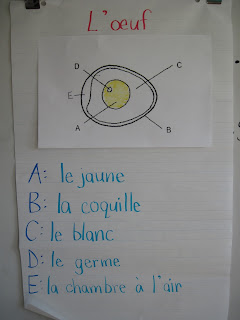 L'oeuf
D
C
E
A
B
A: le jaune
B: la coquille
C: le blanc
D: le germe
E: la chambre à l'air